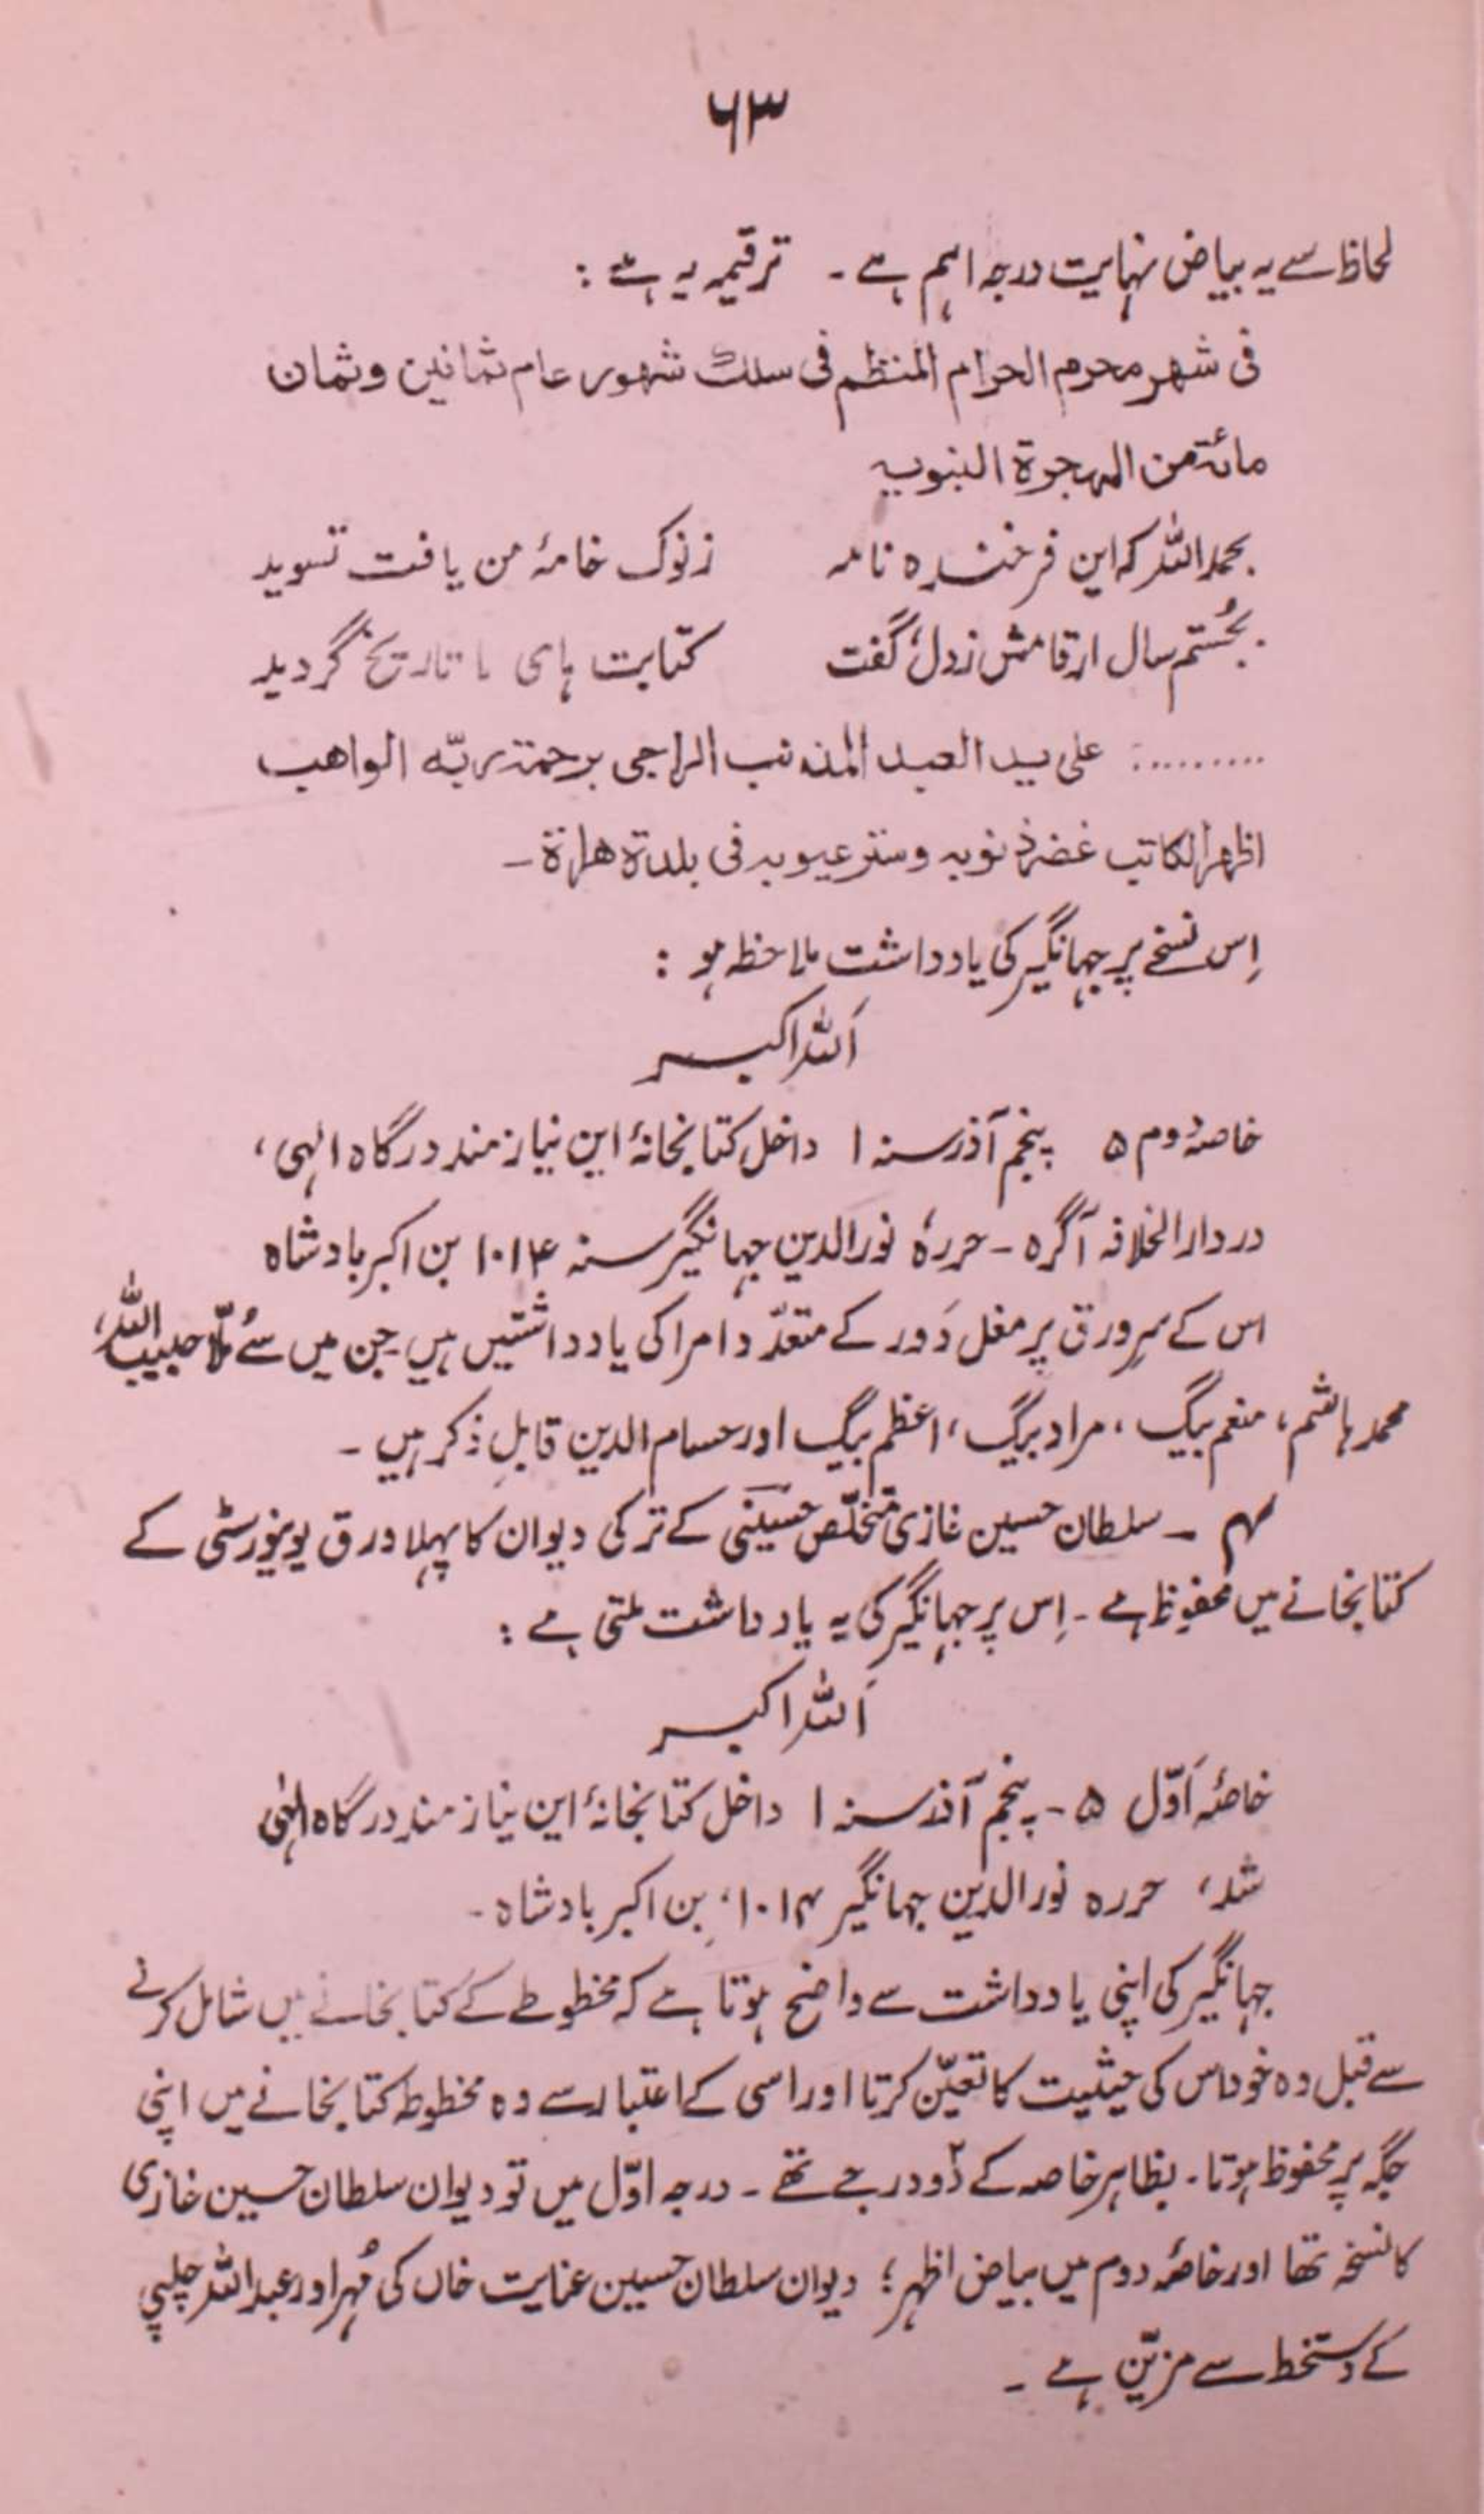 ۶۳
لحاظ سے یہ بیاض نہایت درجہ اہم ہے ۔ ترقیمہ یہ ہے :
فی شهر محرم الحرام المنظم فی سلك شهور عام ثمانین وثمان
مائة من الهجرة النبویه
بحمد اللہ کہ این فرخندہ نامہ زنوک خامۂ من یافت تسوید
بجُستم سال ارقامش زدل، گفت کتابت ہای ما تاریخ گردید
.......... علی ید العبد المذنب الراجی برحمة ربّه الواهب
اظهر الکاتب غفر ذنوبه وستر عیوبه فی بلدة هراة ۔
اِس نسخے پر جہانگیر کی یادداشت ملاحظہ ہو :
اَللہ اکبر
خاصۂ دوم ۵ پنجم آذر سنہ ۱ داخل کتابخانۂ این نیازمند درگاہ الٰہی،
در دارالخلافہ آگرہ ۔ حررہٗ نورالدین جہانگیر سنہ ۱۰۱۴ بن اکبر بادشاہ
اس کے سرِ ورق پر مغل دَور کے متعدّد امرا کی یادداشتیں ہیں جن میں سے مُلّا حبیب اللہ،
محمد ہاشم، منعم بیگ، مراد بیگ، اعظم بیگ اور حسام الدین قابلِ ذکر ہیں ۔
۴ ۔ سلطان حسین غازی متخلّص حسینی کے ترکی دیوان کا پہلا ورق یونیورسٹی کے
کتابخانے میں محفوظ ہے ۔ اِس پر جہانگیر کی یہ یادداشت ملتی ہے :
اَللہ اکبر
خاصۂ اَوّل ۵ ۔ پنجم آذر سنہ ۱ داخل کتابخانۂ این نیازمند درگاہ الٰہی
شد، حررہ نورالدین جہانگیر ۱۰۱۴، بِن اکبر بادشاہ ۔
جہانگیر کی اپنی یادداشت سے واضح ہوتا ہے کہ مخطوطے کے کتابخانے میں شامل کرنے
سے قبل وہ خود اس کی حیثیت کا تعیّن کرتا اور اسی کے اعتبار سے وہ مخطوطہ کتابخانے میں اپنی
جگہ پر محفوظ ہوتا ۔ بظاہر خاصہ کے دو درجے تھے ۔ درجہ اوّل میں تو دیوان سلطان حسین غازی
کا نسخہ تھا اور خاصۂ دوم میں بیاض اظہر؛ دیوان سلطان حسین عنایت خاں کی مُہر اور عبداللہ چلپی
کے دستخط سے مزیّن ہے ۔